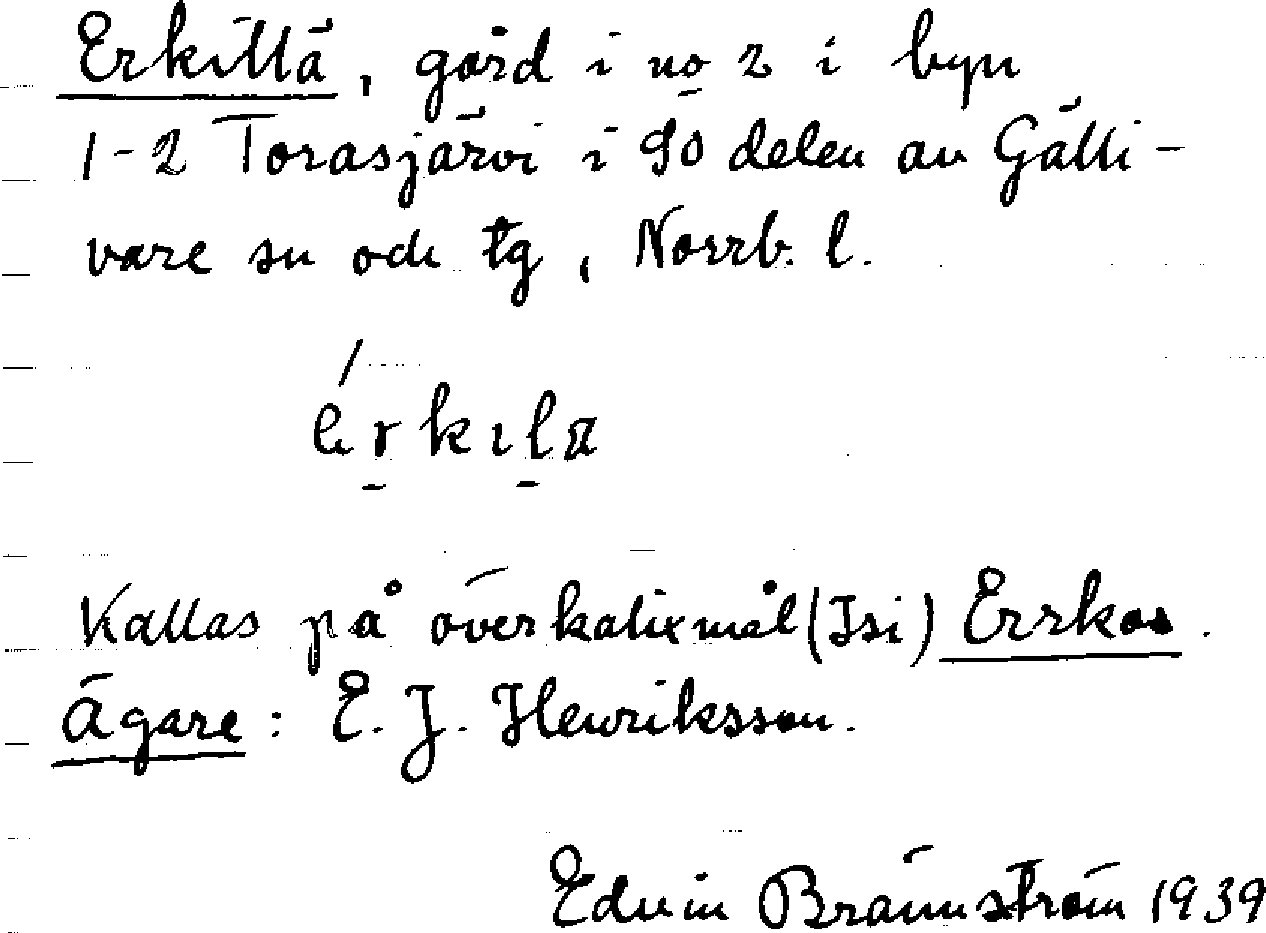 Erkillä, gård i no 2 i byn
1-2 Torasjärvi i sö delen av Gälli-
vare sn och tg, Norrb. l.
Kallas på överkalixmål (Isi) Errkos.
Ägare: E. J. Henriksson.
Edvin Brännström 1939